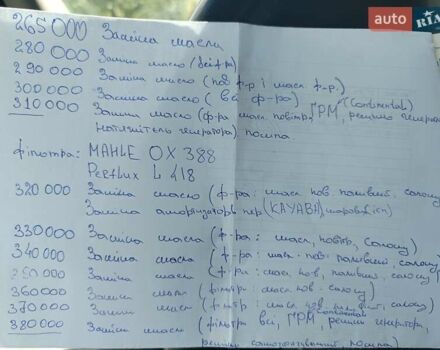 auto RIA
265 000 Заміна масла
280 000 Заміна масло (всі ф-ра)
290 000 Заміна масло (пов ф-р і масл ф-р.)
300 000 Заміна масло (всі ф-ра)
310 000 Заміна масло (ф-ра масл повітр, ГРМ (Continental), ремінь генератора
натяжитель генератора) помпа.
фільтра: MAHLE OX 388
Purflux L 418
320 000 Заміна масло (ф-ра: масл пов. салону)
Заміна амортизаторів пер (KAYABA)
330 000 Заміна масла (ф-ра: масл, повітр, салону)
340 000 Заміна масла (ф-ра: масл. пов. паливний, салону)
350 000 Заміна масла (ф-ри: масл пов, паливн, салону)
360000 Заміна масл (фільтр: масл пов. салону)
370 000 Заміна масл (фільтр: масл пов, салону)
380 000 Заміна масла (фільтра всі, ГРМ continental, ремінь генератора,
ремінь помпа)